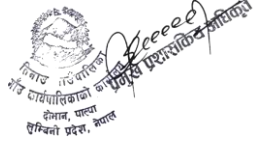 गाउँपालिका
गाँउ कार्यपालिकाको कार्यालय
दोभान, पाल्पा
लुम्बिनी प्रदेश, नेपाल
प्रमुख प्रशासकिय अधिकृत